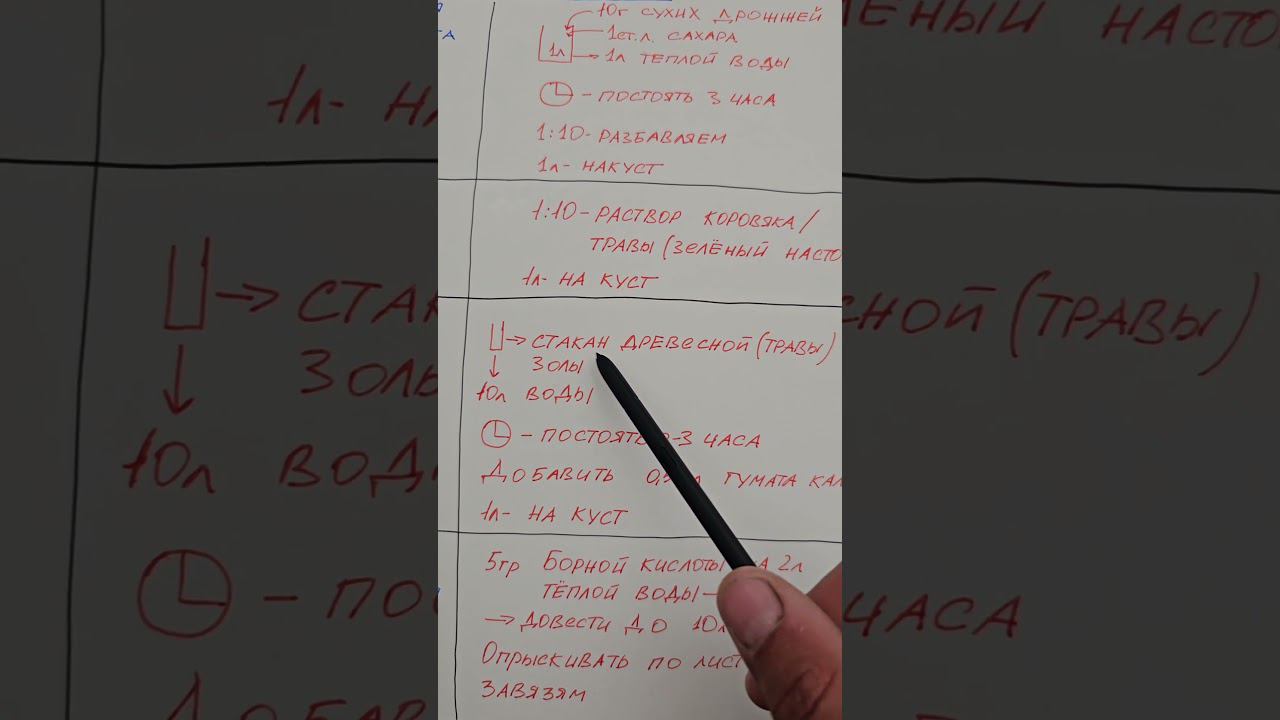 10г СУХИХ ДРОЖЖЕЙ
1ст.л. САХАРА
1л
1л ТЕПЛОЙ ВОДЫ
- ПОСТОЯТЬ 3 ЧАСА
1:10- РАЗБАВЛЯЕМ
1л- НА КУСТ
1:10- РАСТВОР КОРОВЯКА/
ТРАВЫ (ЗЕЛЁНЫЙ НАСТО
1л- НА КУСТ
→ СТАКАН ДРЕВЕСНОЙ (ТРАВЫ)
ЗОЛЫ
10л ВОДЫ
- ПОСТОЯТЬ -3 ЧАСА
ДОБАВИТЬ ГУМАТА КАЛ
1л- НА КУСТ
5гр БОРНОЙ КИСЛОТЫ 2л
ТЁПЛОЙ ВОДЫ
→ ДОВЕСТИ ДО 10л
ОПРЫСКИВАТЬ ПО ЛИСТ
ЗАВЯЗЯМ